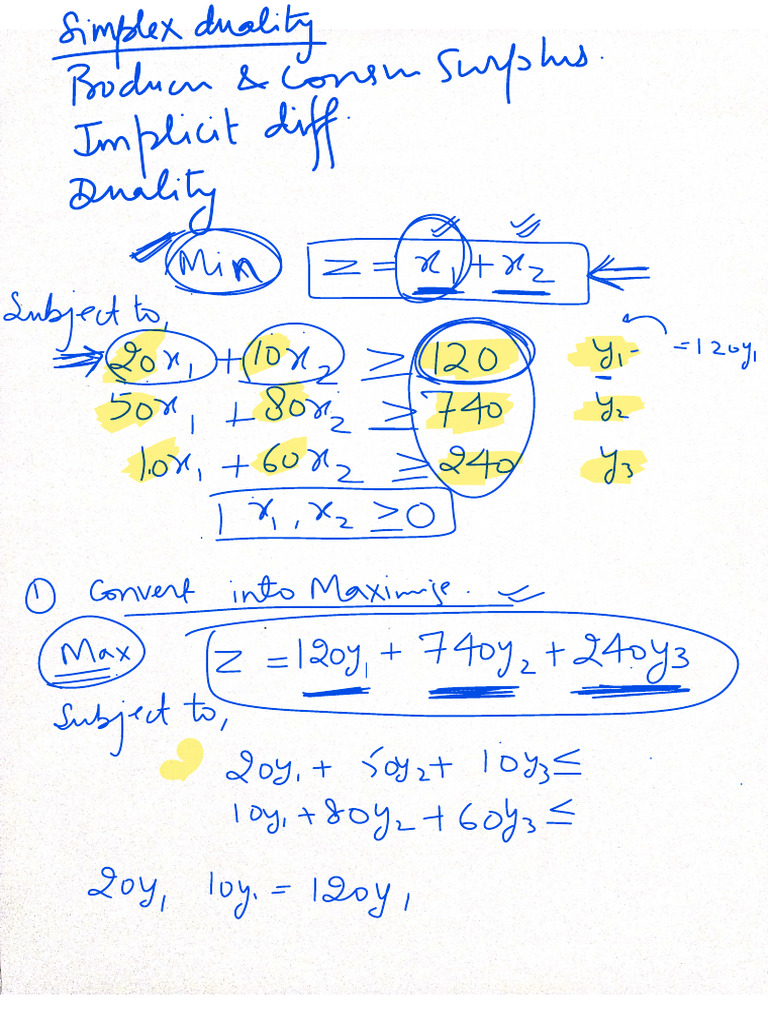 Simplex duality
Producer & Consum Surplus.
Implicit diff.
Duality
Min Z = x₁ + x₂
Subject to,
20x₁ + 10x₂ ≥ 120 y₁ = 120y₁
50x₁ + 80x₂ ≥ 740 y₂
10x₁ + 60x₂ ≥ 240 y₃
x₁, x₂ ≥ 0
① Convert into Maximize.
Max Z = 120y₁ + 740y₂ + 240y₃
Subject to,
20y₁ + 50y₂ + 10y₃ ≤
10y₁ + 80y₂ + 60y₃ ≤
20y₁ 10y₁ = 120y₁